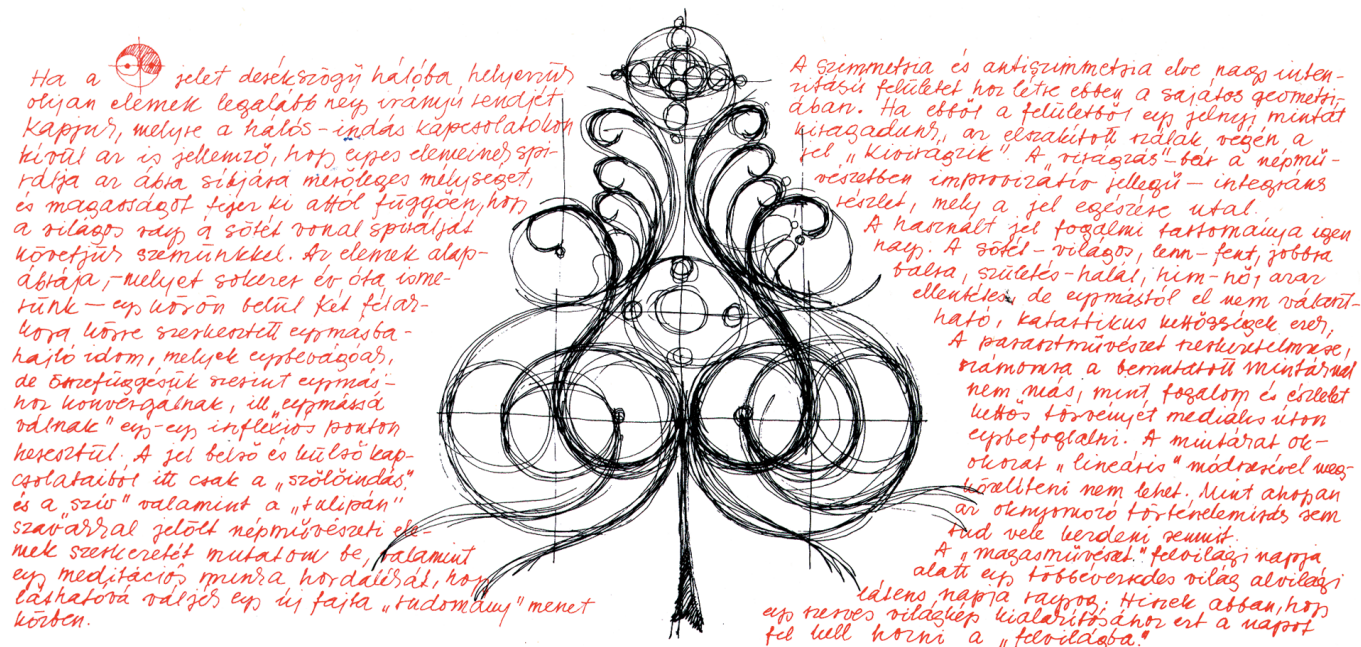 Ha a jelet derékszögű hálóba helyezzük
olyan elemek legalább négy irányú rendjét
kapjuk, melyre a hálós-indás kapcsolatokon
kívül az is jellemző, hogy egyes elemeinek spi-
rálja az ábra síkjára merőleges mélységet,
és magasságot fejez ki attól függően, hogy
a világos vagy a sötét vonal spirálját
követjük szemünkkel. Az elemek alap-
ábrája, – melyet sokezer év óta isme-
rünk – egy körön belül két félar-
körre szerkesztett egymásba-
hajló idom, melyek egybevágóak,
de összefüggésük szerint egymás-
hoz konvergálnak, ill. „egymássá
válnak" egy-egy inflexiós ponton
keresztül. A jel belső és külső kap-
csolataiból itt csak a „szőlőindás"
és a „szív" valamint a „tulipán"
szavakkal jelölt népművészeti ele-
mek szerkezetét mutatom be, valamint
egy meditációs munka hordalékát, hogy
láthatóvá váljék egy új fajta „tudomány" menet
közben.
A szimmetria és antiszimmetria elve nagy inten-
zitású felületet hoz létre ebben a sajátos geometri-
ában. Ha ebből a felületből egy jelnyi mintát
kiragadunk, az elszakított szálak végén a
jel „kivirágzik". A „virágzás"-bár a népmű-
vészetben improvizatív jellegű – integráns
részlet, mely a jel egészére utal.
A használt jel fogalmi tartománya igen
nagy. A sötét-világos, lenn-fent, jobbra
balra, születés-halál, hím-nő, azaz
ellentétes de egymástól el nem választ-
ható, katartikus kettősségek ezek,
A parasztművészet szerkezetelmzése,
számomra a bemutatott mintáknál
nem más, mint fogalom és észlelet
kettős törvényét mediális úton
egybefoglalni. A mintákat ok-
okozat „lineáris" módszerével meg-
közelíteni nem lehet. Mint ahogyan
az oknyomozó történelemírás sem
tud vele kezdeni semmit.
A „magasművészet" felvilági napja
alatt egy többévezredes világ alvilági
látens napja ragyog. Hiszek abban, hogy
egy szerves világkép kialakításához ezt a napot
fel kell hozni a „felvilágba."